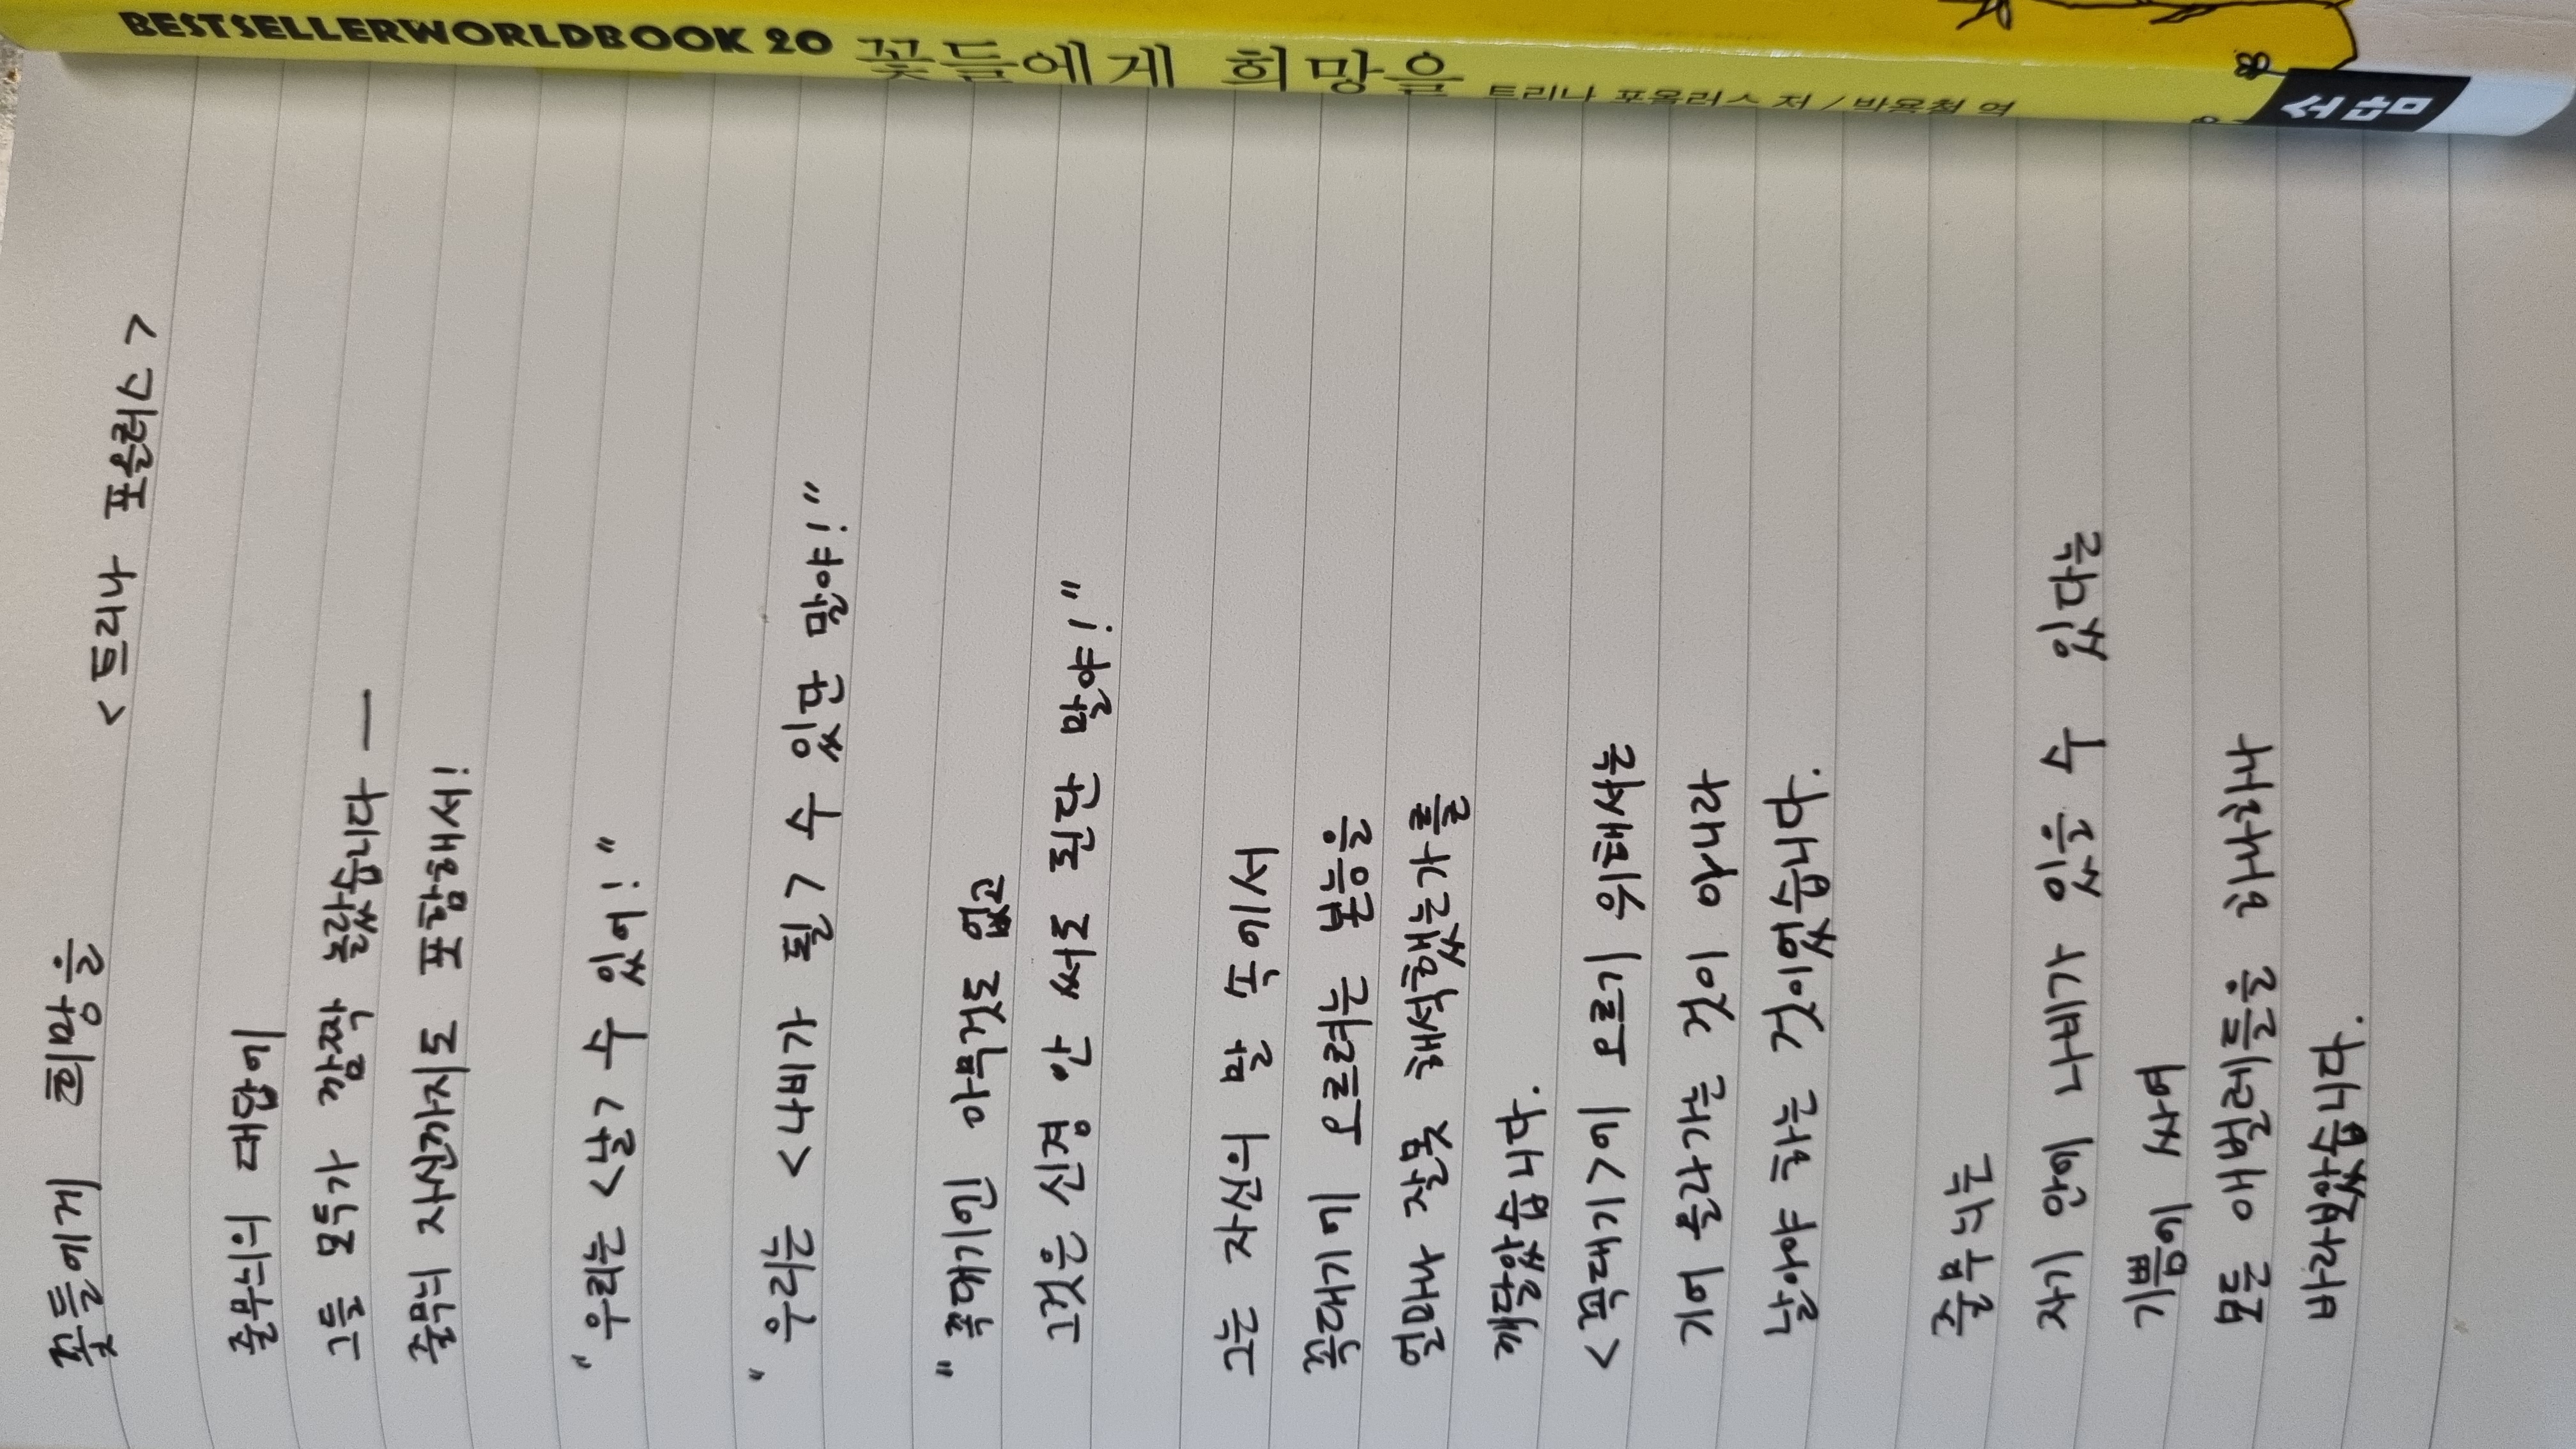 BESTSELLERWORLDBOOK 20 꽃들에게 희망을 트리나 포올러스 저 / 박용철 역
꽃들에게 희망을
<트리나 포올러스>
줄무늬의 대답에
그들 모두가 깜짝 놀랐습니다 —
줄무늬 자신까지도 포함해서!
"우리는 <날> 수 있어!"
"우리는 <나비가 될> 수 있단 말야!"
"꼭대기엔 아무것도 없고
그것은 신경 안 써도 된단 말야!"
그는 자신의 말 속에서
꼭대기에 오르려는 본능을
얼마나 잘못 해석했는가를
깨달았습니다.
<꼭대기>에 오르기 위해서는
기어 올라가는 것이 아니라
날아야 하는 것이었습니다.
줄무늬는
자기 안에 나비가 있을 수 있다는
기쁨에 싸여
모든 애벌레들을 하나하나
바라보았습니다.